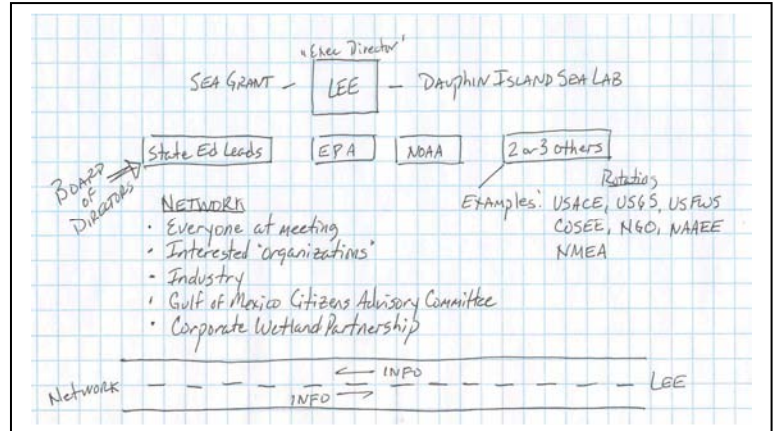 "Exec Director"
SEA GRANT - LEE - DAUPHIN ISLAND SEA LAB
BOARD OF DIRECTORS
State Ed Leads EPA NOAA 2 or 3 others
Rotating
Examples: USACE, USGS, USFWS
COSEE, NGO, NAAEE
NMEA
NETWORK
· Everyone at meeting
· Interested 'organizations'
· Industry
· Gulf of Mexico Citizens Advisory Committee
· Corporate Wetland Partnership
INFO
Network LEE
INFO